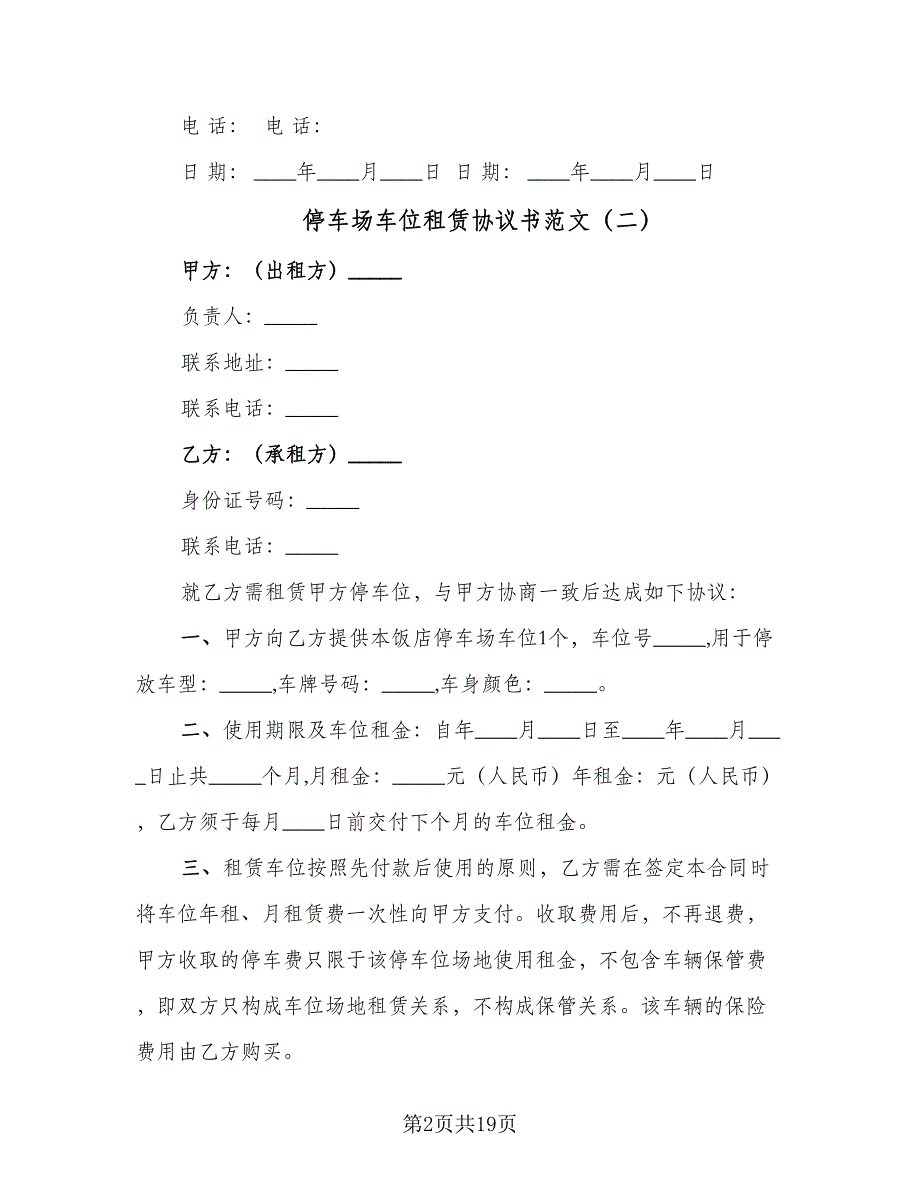 电 话： 电 话：
日 期： ____年____月____日 日 期： ____年____月____日
停车场车位租赁协议书范文（二）
甲方：（出租方）_____
负责人：_____
联系地址：_____
联系电话：_____
乙方：（承租方）_____
身份证号码：_____
联系电话：_____
就乙方需租赁甲方停车位，与甲方协商一致后达成如下协议：
一、甲方向乙方提供本饭店停车场车位1个，车位号_____,用于停
放车型：_____,车牌号码：_____,车身颜色：_____。
二、使用期限及车位租金：自年____月____日至____年____月___
_日止共_____个月,月租金：_____元（人民币）年租金：元（人民币）
，乙方须于每月____日前交付下个月的车位租金。
三、租赁车位按照先付款后使用的原则，乙方需在签定本合同时
将车位年租、月租赁费一次性向甲方支付。收取费用后，不再退费，
甲方收取的停车费只限于该停车位场地使用租金，不包含车辆保管费
，即双方只构成车位场地租赁关系，不构成保管关系。该车辆的保险
费用由乙方购买。
第2页共19页